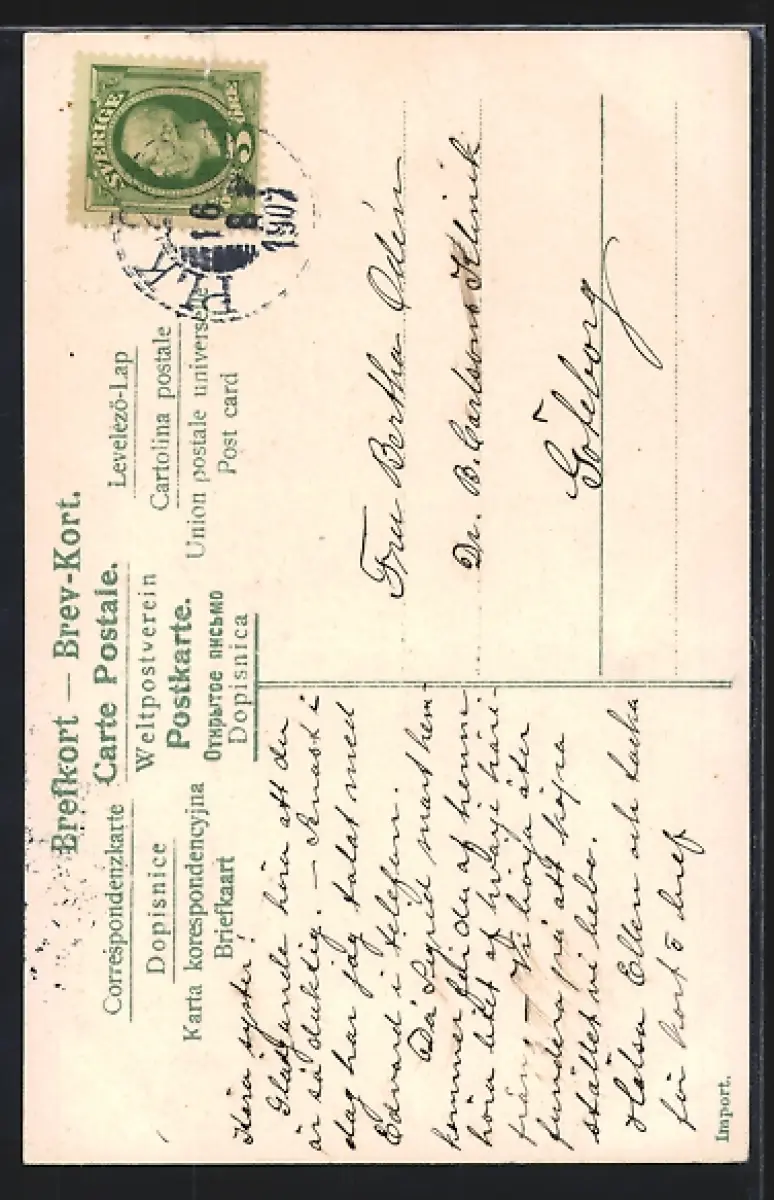 Brefkort — Brev-Kort.
Carte Postale.
Correspondenzkarte
Levelező-Lap
Weltpostverein
Dopisnice
Cartolina postale
Postkarte.
Karta korespondencyjna
Union postale universelle
Открытое письмо
Briefkaart
Post card
Dopisnica
SVERIGE
5 ÖRE
16
8
1907
Fru Bertha Odén
Dr. B. Carlsons Klinik
Göteborg
Kära syster!
Glädjande höra att du
är så duktig. – Knast i
dag har jag talat med
Edvard i telefon.
Då Sigrid snart hem-
kommer får du af henne
höra litet af hvarje häri-
från. – Vi börja åter
fundera på att höja
stället vi hebo.
Hälsa Ellen och tacka
för kort o bref
Import.